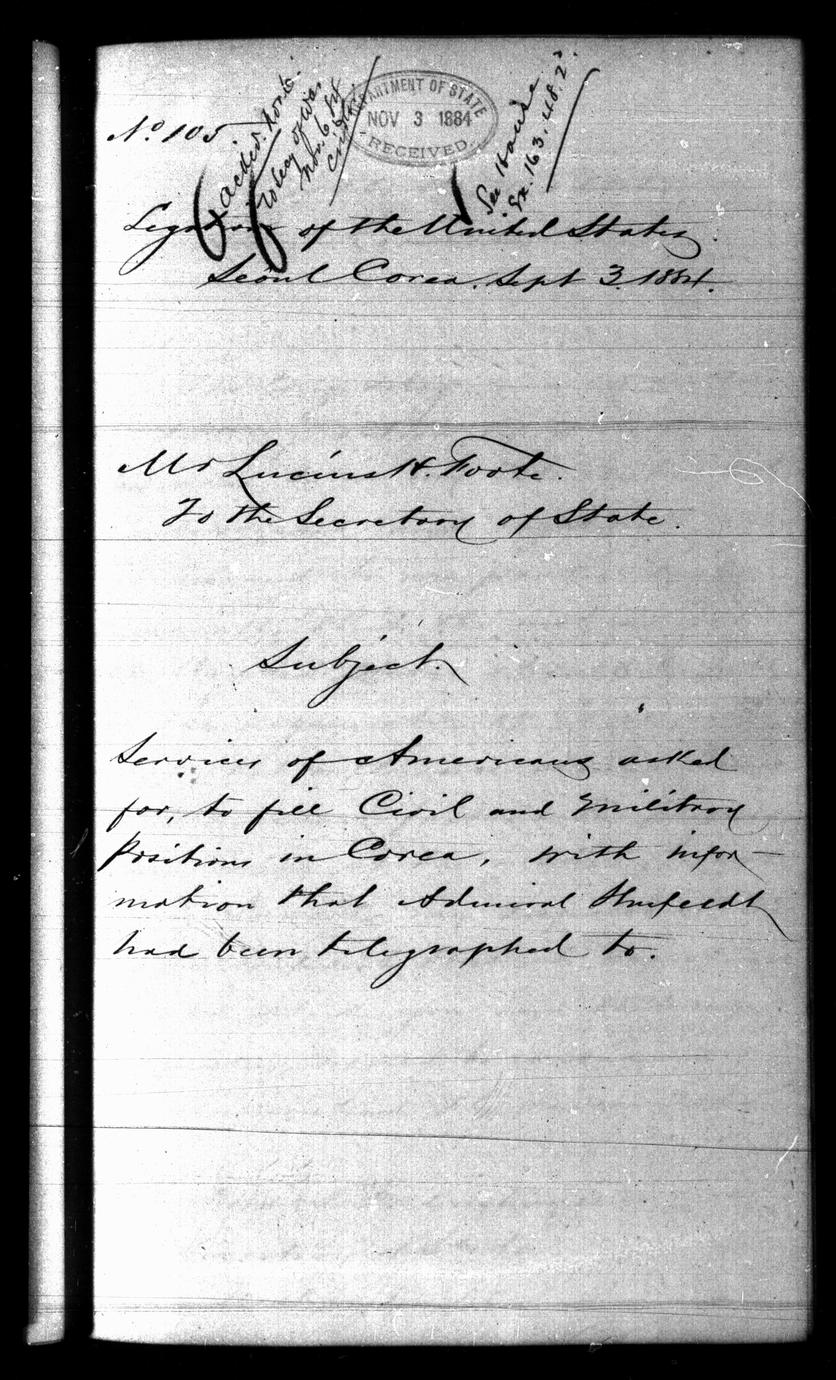 No 105
ackd. Nov 6.
To Secy of War
Nov. 6. 84
DEPARTMENT OF STATE
NOV 3 1884
RECEIVED.
See House
Ex. 163. 48. 2d.
Legation of the United States
Seoul Corea. Sept 3. 1884.
Mr Lucius H. Foote.
To the Secretary of State.
Subject.
Services of Americans asked
for, to fill Civil and Military
Positions in Corea, with infor-
mation that Admiral Shufeldt
had been telegraphed to.